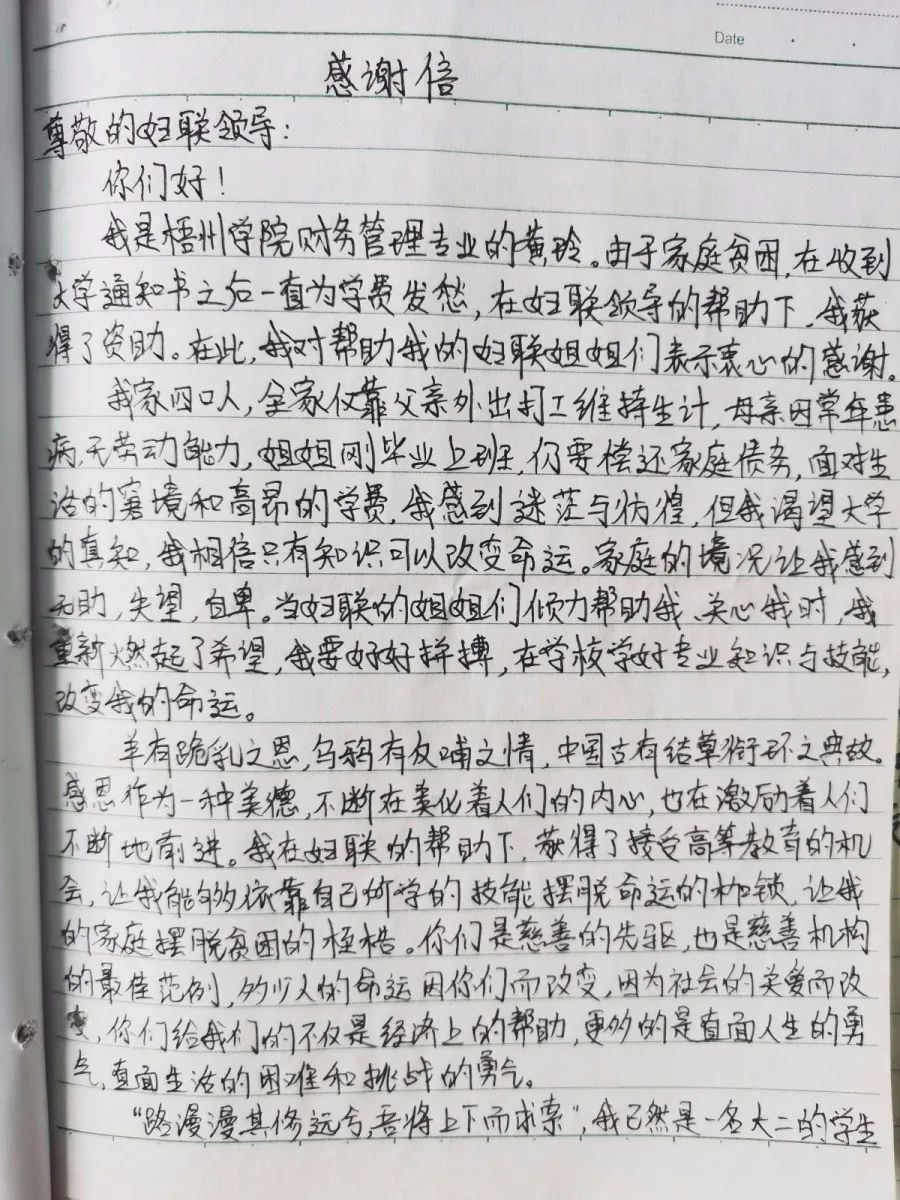 Date
感谢信
尊敬的妇联领导：
你们好！
我是梧州学院财务管理专业的黄玲。由于家庭贫困，在收到
大学通知书之后一直为学费发愁，在妇联领导的帮助下，我获
得了资助。在此，我对帮助我的妇联姐姐们表示衷心的感谢。
我家四口人，全家仅靠父亲外出打工维持生计，母亲因常年患
病，无劳动能力，姐姐刚毕业上班，仍要偿还家庭债务，面对生
活的窘境和高昂的学费，我感到迷茫与彷徨，但我渴望大学
的真知，我相信只有知识可以改变命运。家庭的境况让我感到
无助，失望，自卑。当妇联的姐姐们倾力帮助我、关心我时，我
重新燃起了希望，我要好好拼搏，在学校学好专业知识与技能，
改变我的命运。
羊有跪乳之恩，乌鸦有反哺之情，中国古有结草衔环之典故。
感恩作为一种美德，不断在美化着人们的内心，也在激励着人们
不断地前进。我在妇联的帮助下，获得了接受高等教育的机
会，让我能够依靠自己所学的技能摆脱命运的枷锁，让我
的家庭摆脱贫困的桎梏。你们是慈善的先驱，也是慈善机构
的最佳范例，多少人的命运因你们而改变，因为社会的关爱而改
变，你们给我们的不仅是经济上的帮助，更多的是直面人生的勇
气，直面生活的困难和挑战的勇气。
“路漫漫其修远兮，吾将上下而求索”，我已然是一名大二的学生